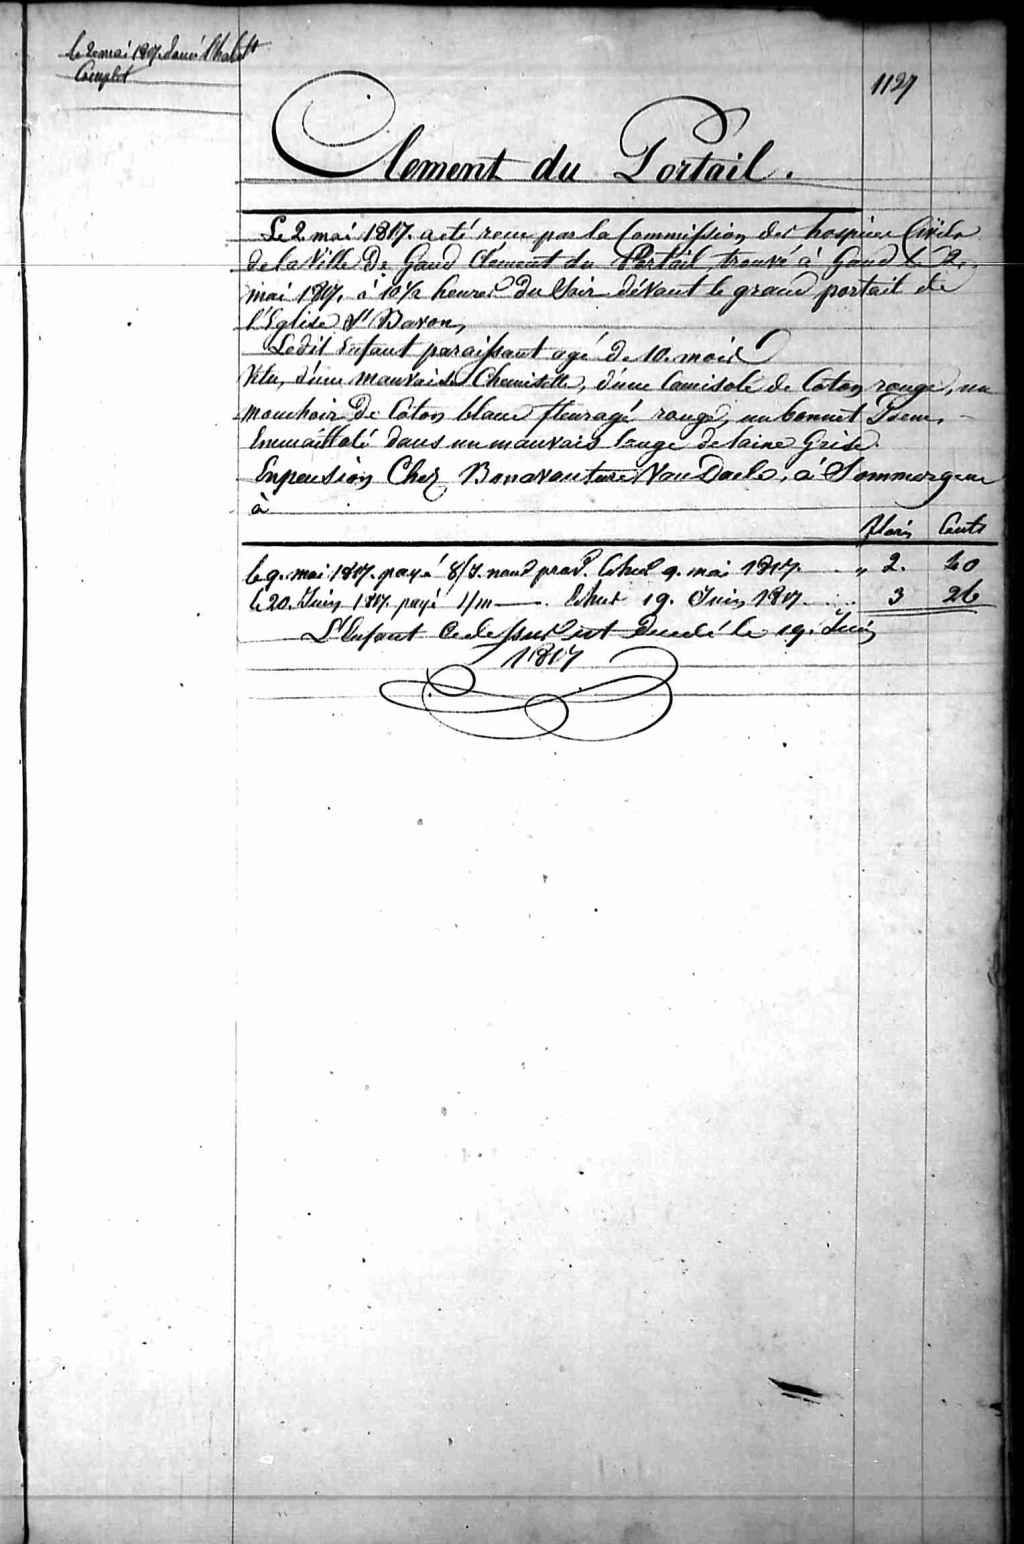 le 2 mai 1817. donné l'habit
Complet
1127
Clement du Portail.
Le 2 mai 1817. a été recu par la Commission des hospices Civils
de la Ville De Gand Clément du Portail, trouvé à Gand le 2.
mai 1817. à 10 1/2 heures Du Soir dévant le grand portail de
l'Eglise St Bavon,
Ledit Enfant paraissant agé de 10. mois
Vetu, d'une mauvaise Chemisette, d'une Camisole de Coton rouge, un
mouchoir De Coton blanc fleuragé rouge, un bonnet Idem,
Emmaillolé dans un mauvais lange de laine Grise.
Enpension Chez Bonavanture Van Daele, à Sommergem
à
florin Cents
le 9. mai 1817. payé 8/J. Echus 9. mai 1817. " 2. 40
le 20. Juin 1817. payé 1/m Echus 19. Juin 1817. 3 26
L'Enfant Cidessus est Decedé le 19. Juin
1817